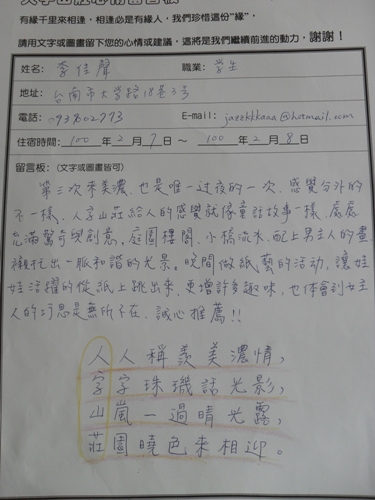 有緣千里來相逢，相逢必是有緣人，我們珍惜這份"緣"，
請用文字或圖畫留下您的心情或建議，這將是我們繼續前進的動力，謝謝！
姓名：李佳聲 職業：學生
地址：台南市大學路18巷3号
電話： E-mail：jazzkkkaaa@hotmail.com
住宿時間：100年2月7日～100年2月8日
留言板：(文字或圖畫皆可)
第三次來美濃，也是唯一过夜的一次，感覺分外的
不一樣，人字山莊給人的感覺就像童話故事一樣，處處
充滿驚奇與創意，庭園樓閣，小橋流水，配上男主人的畫
襯托出一脈和諧的光景。晚間做紙藝的活動，讓娃
娃活躍的從紙上跳出來，更增許多趣味，也体會到女主
人的巧思是無所不在，誠心推薦!!
人人稱羨美濃情，
字字珠璣話光影，
山嵐一過晴光露，
莊園曉色來相迎。